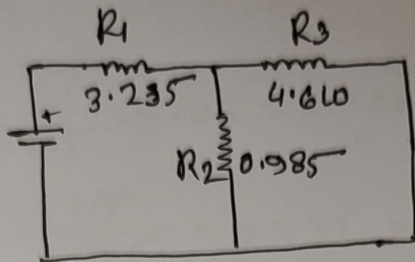 R1 R3
3.235 4.610
+
R2 0.985